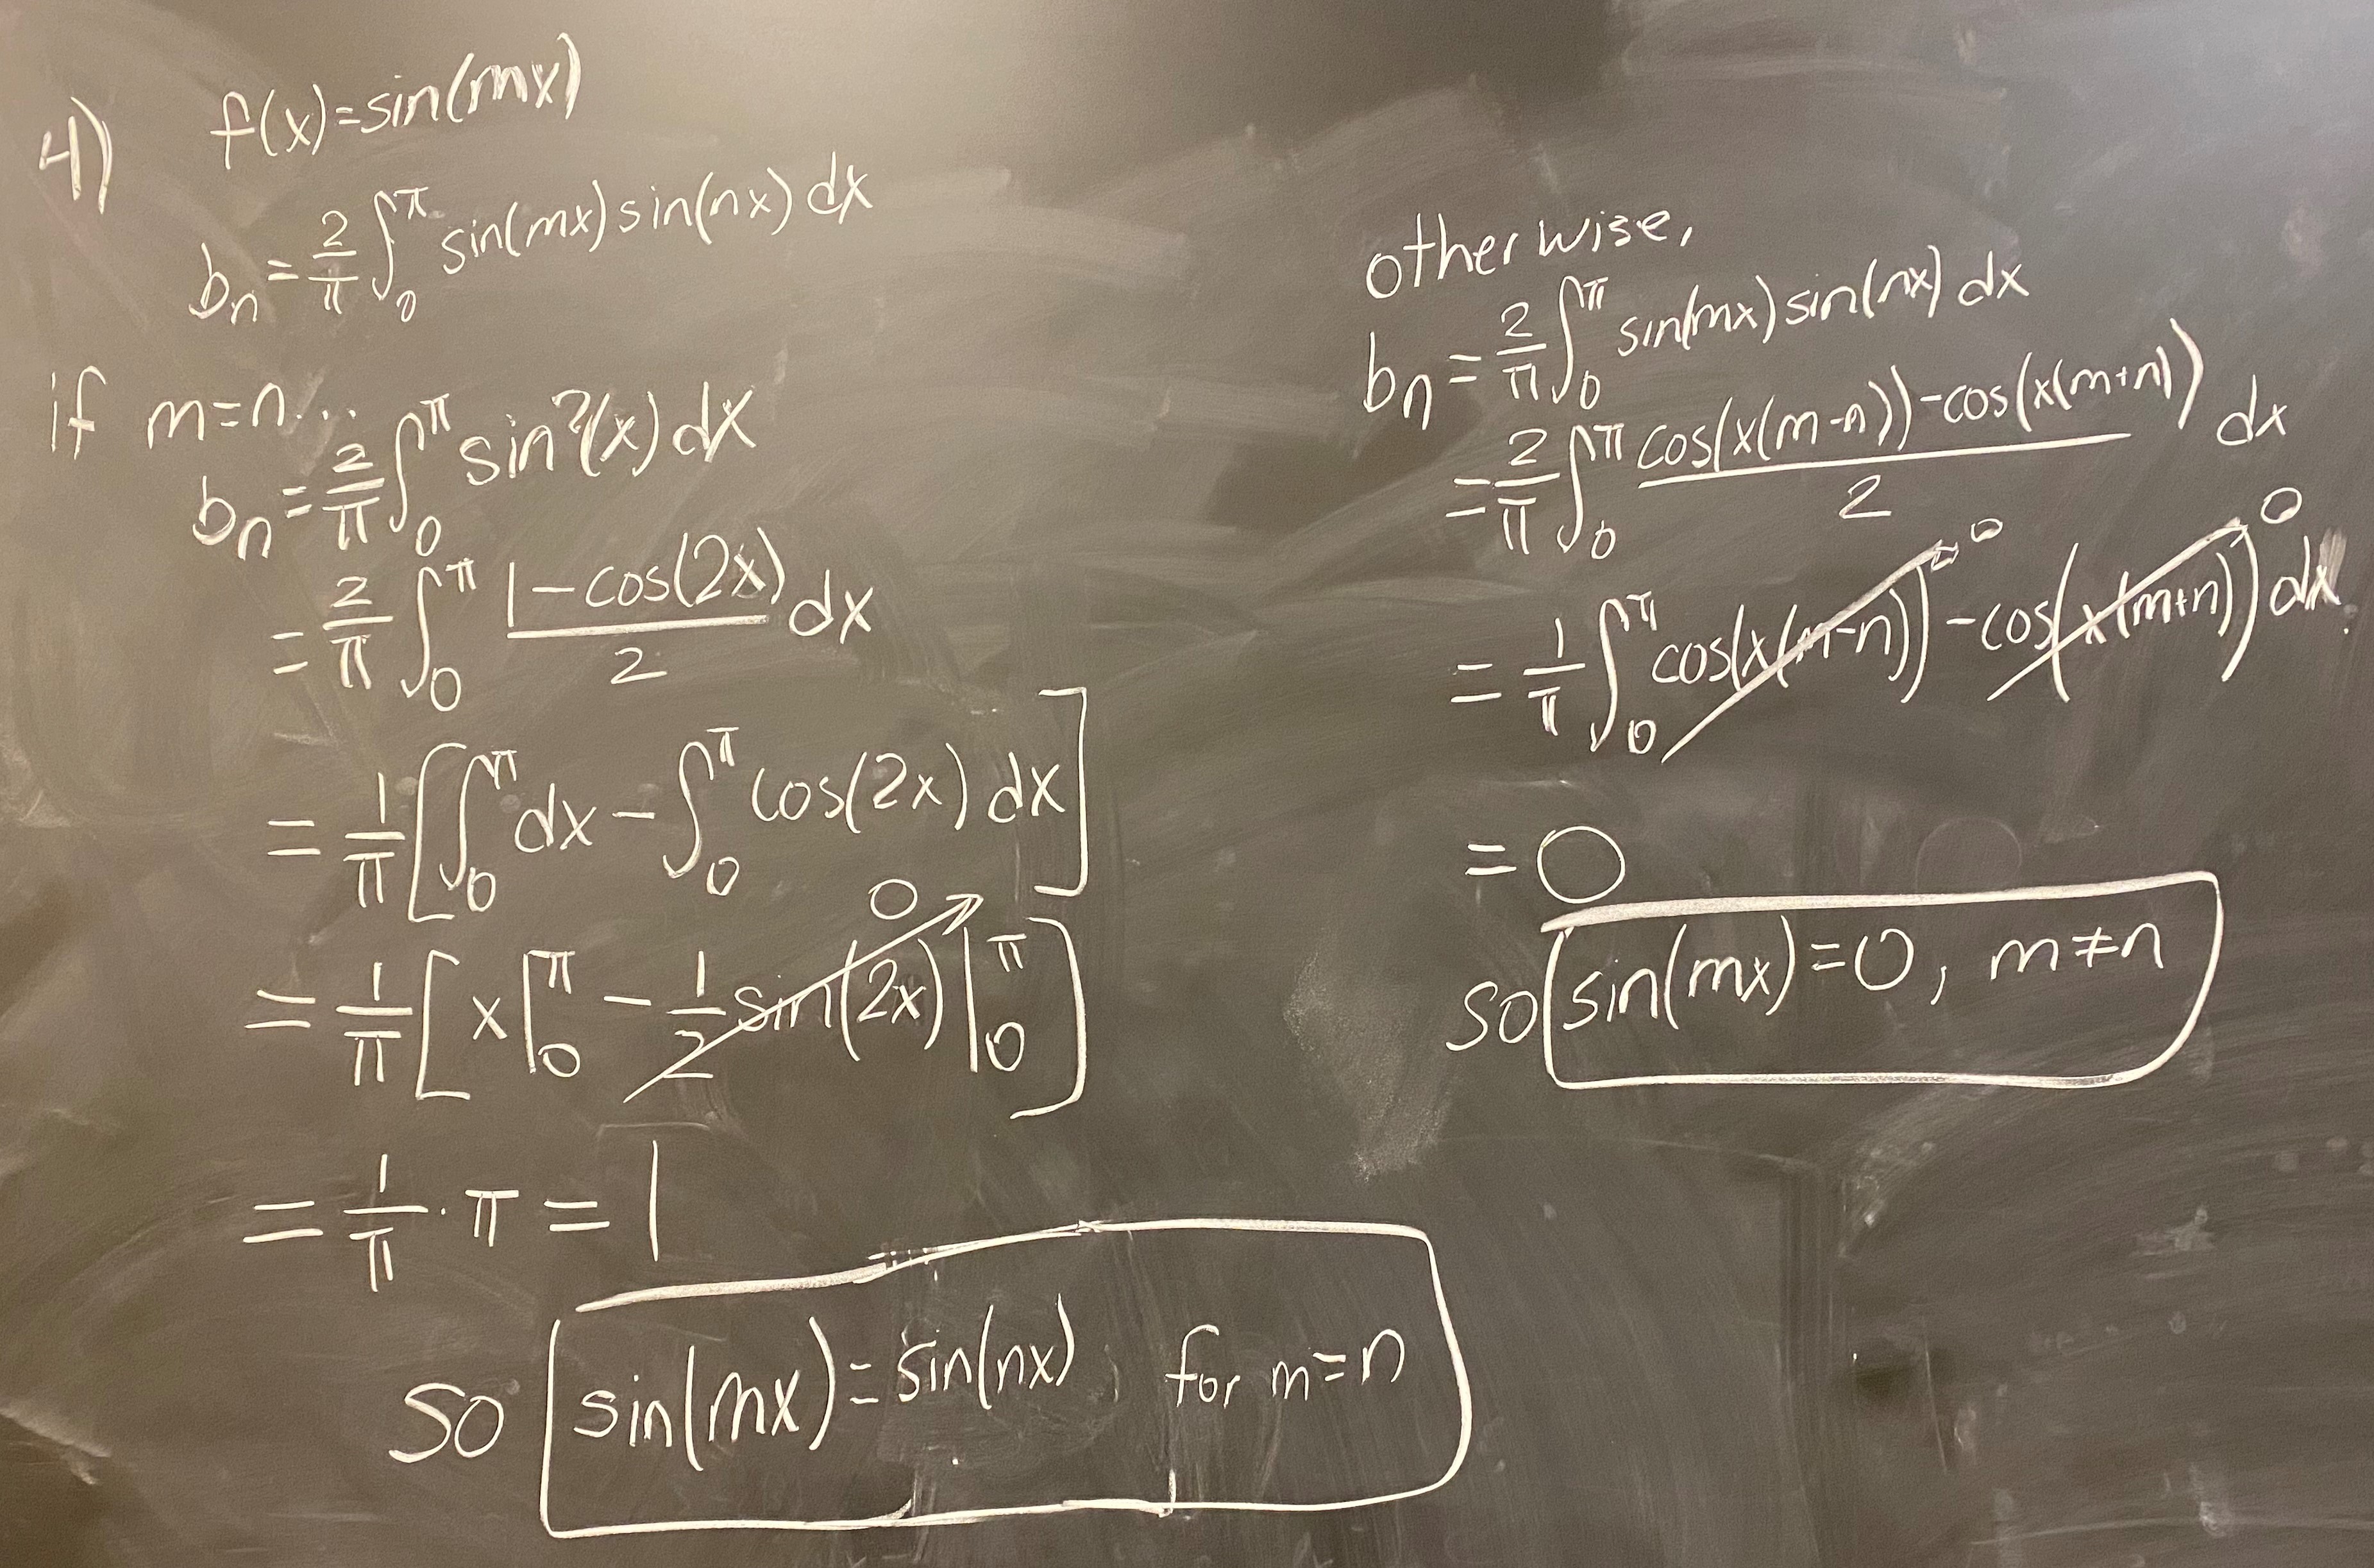 4) f(x)=sin(mx)
bₙ = 2/π ∫₀^π sin(mx) sin(nx) dx
if m=n...
bₙ = 2/π ∫₀^π sin²(x) dx
= 2/π ∫₀^π (1-cos(2x))/2 dx
= 1/π [∫₀^π dx - ∫₀^π cos(2x) dx]
= 1/π [x|₀^π - 1/2 sin(2x)|₀^π] 0
= 1/π · π = 1
so sin(mx)=sin(nx), for m=n
otherwise,
bₙ = 2/π ∫₀^π sin(mx) sin(nx) dx
= 2/π ∫₀^π (cos(x(m-n))-cos(x(m+n)))/2 dx
= 1/π ∫₀^π cos(x(m-n)) 0 -cos(x(m+n)) 0 dx
= 0
so sin(mx)=0, m≠n